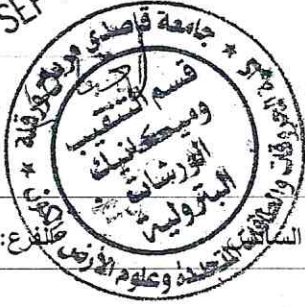 SEP
جامعة قاصدي مرباح ورقلة
قسم التنقيب
وميكانيك
الورشات
البترولية
والطاقات المتجددة وعلوم الأرض والكون
الفرع: